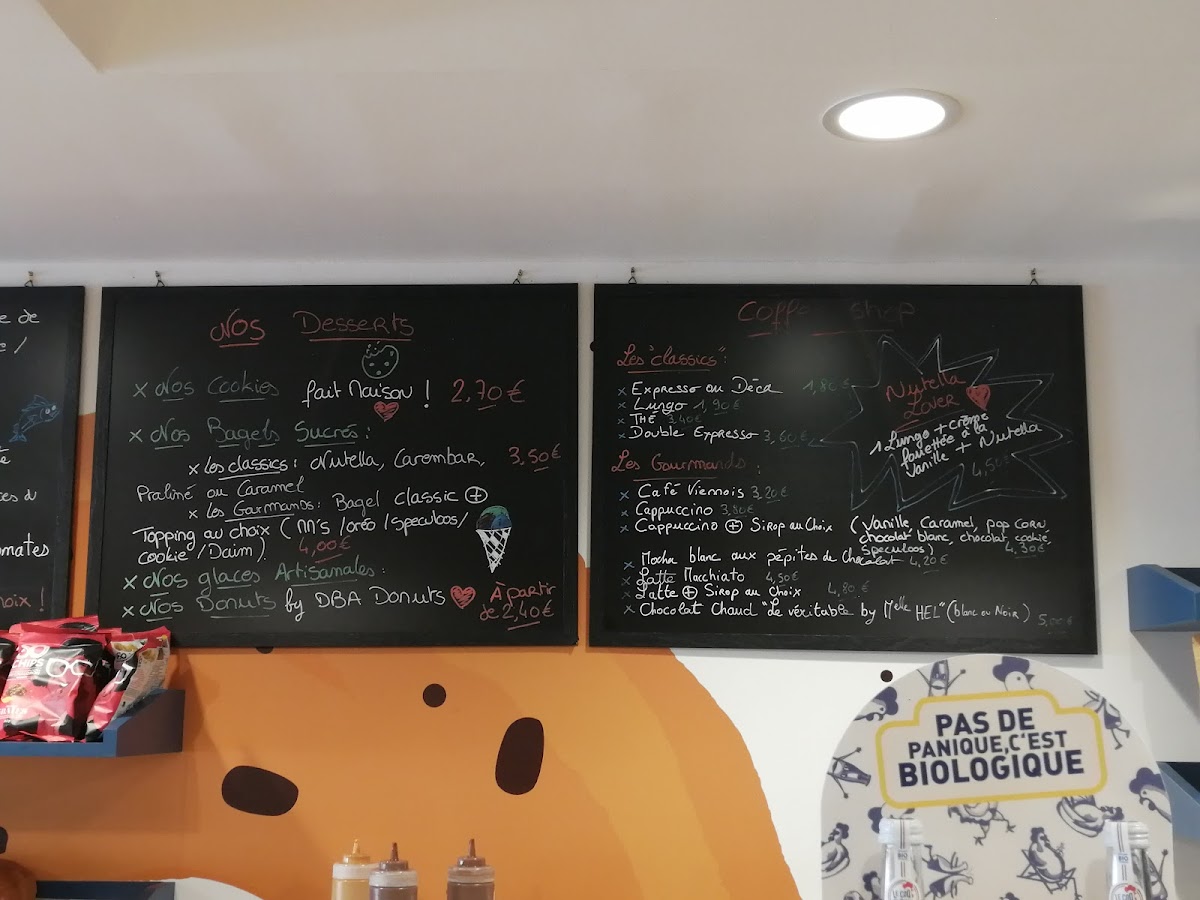 e de
e /
te
ces du
omates
hoix !
Nos Desserts
x Nos Cookies fait Maison ! 2,70 €
x Nos Bagels Sucrés :
x Les classics : Nutella, Carembar, 3,50 €
Praliné ou Caramel
x Les Gourmands : Bagel classic +
Topping au choix ( M'S / oréo / Speculos /
cookie / Daim ). 4,00 €
x Nos glaces Artisanales :
x Nos Donuts by DBA Donuts À partir
de 2,40 €
Coffe shop
Les "classics" :
x Expresso ou Déca 1,80 €
x Lungo 1,90 €
x THÉ 3,40 €
x Double Expresso 3,60 €
Nutella
Lover
1 Lungo + crème
fouettée à la
Vanille + Nutella
4,50 €
Les Gourmands :
x Café Viennois 3,20 €
x Cappuccino 3,80 €
x Cappuccino + Sirop au Choix ( Vanille, Caramel, pop corn,
chocolat blanc, chocolat, cookie,
Speculoos ) 4,30 €
x Mocha blanc aux pépites de Chocolat 4,20 €
x Latte Macchiato 4,50 €
x Latte + Sirop au Choix 4,80 €
x Chocolat Chaud "Le véritable by Melle HEL" (blanc ou Noir ) 5,00 €
CHIPS
PAS DE
PANIQUE, C'EST
BIOLOGIQUE
BIO
LE COQ